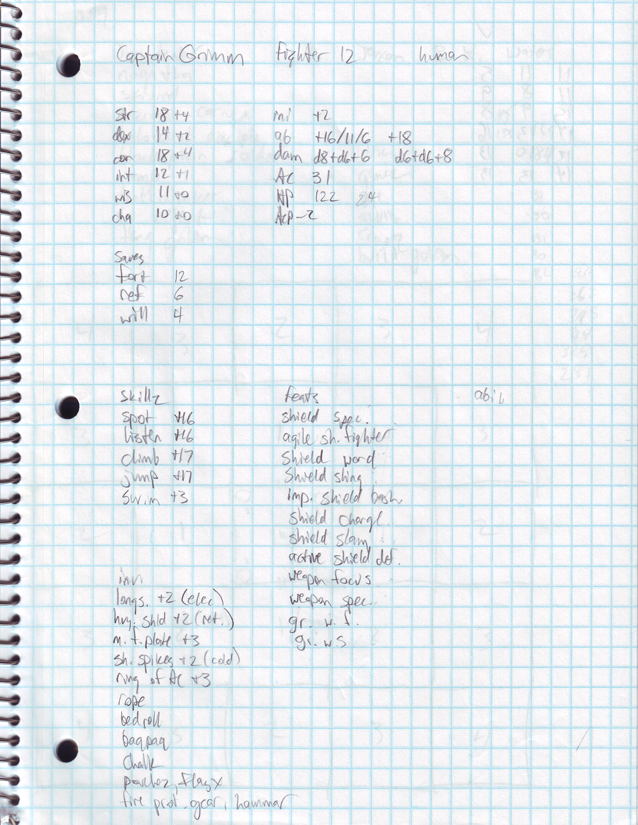 Captain Grimm fighter 12 human
str 18 +4
dex 14 +2
con 18 +4
int 12 +1
wis 11 +0
cha 10 +0
ini +2
ab +16/11/6 +18
dam d8+d6+6 d6+d6+8
AC 31
HP 122 24
Acp -2
saves
fort 12
ref 6
will 4
skillz
spot +16
listen +16
climb +17
jump +17
swim +3
feats
shield spec.
agile sh. fighter
shield ward
shield sling
imp. shield bash
shield charge
shield slam
active shield def.
weapon focus
weapon spec.
gr. w.f.
gr. w.s
abil
inv.
longs. +2 (elec)
hvy. shld +2 (ret.)
m.f.plate +3
sh. spikes +2 (cold)
ring of AC +3
rope
bedroll
baqpaq
chalk
pouchez, flasx
fire prod. gear, hammar